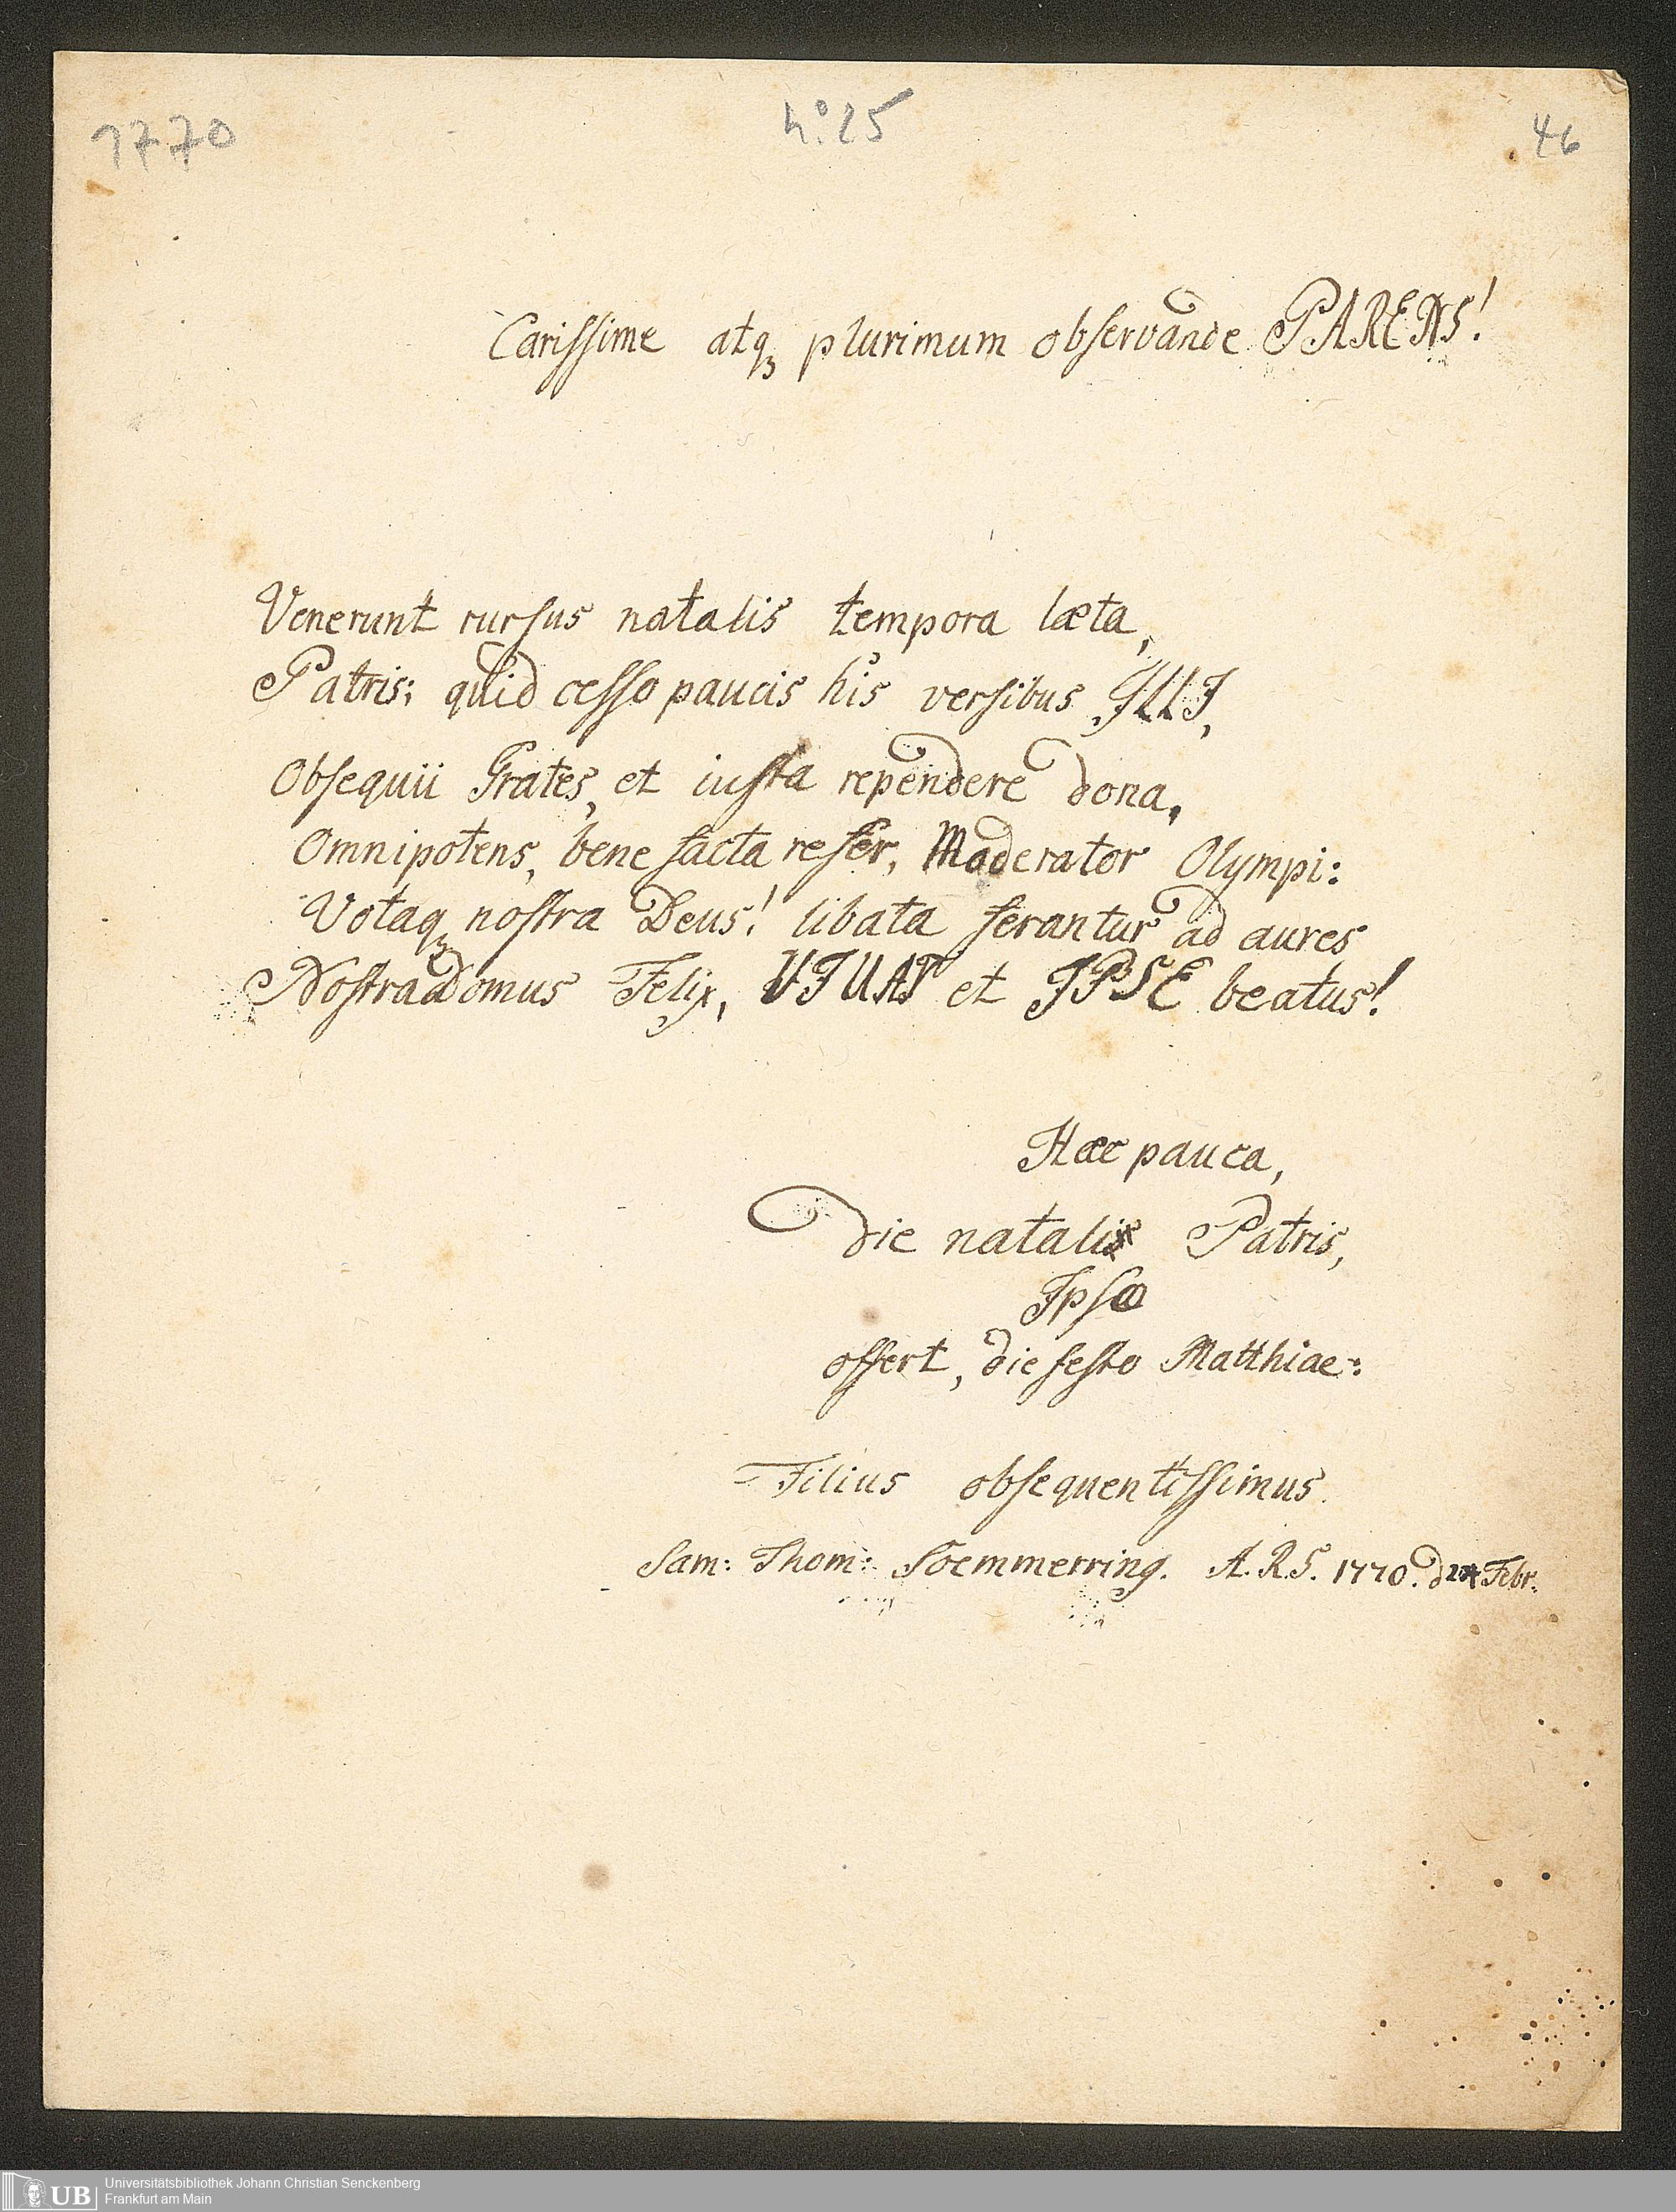 1770
no. 25
46
Carissime atqꝫ plurimum observande PARENS!
Venerunt rursus natalis tempora læta,
Patris; quid cesso paucis his versibus JLLJ,
Obsequii Grates, et iusta rependere dona,
Omnipotens, bene facta refer, Moderator Olympi:
Votaqꝫ nostra Deus! libata ferantur ad aures
Nostra Domus Felix, VJUAT et JPSE beatus!
Haec pauca,
Die natali Patris,
Jpso
offert, die festo Matthiae:
Filius obsequentissimus
Sam: Thom: Soemmerring. A. R. S. 1770. d 24 Febr.
UB
Universitätsbibliothek Johann Christian Senckenberg
Frankfurt am Main